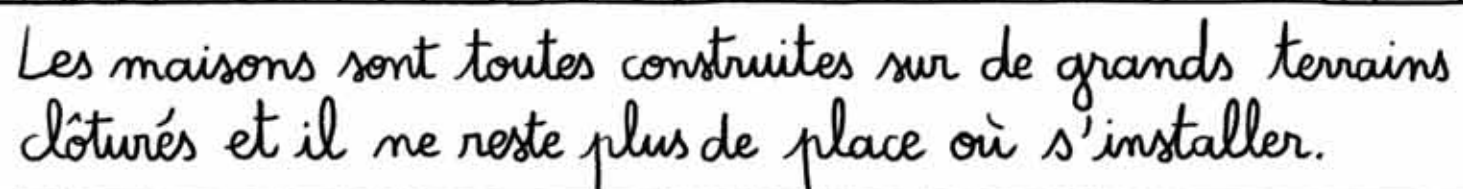 Les maisons sont toutes construites sur de grands terrains
clôturés et il ne reste plus de place où s'installer.